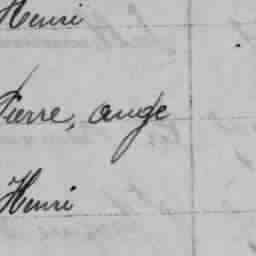 Henri
Pierre, ange
Henri